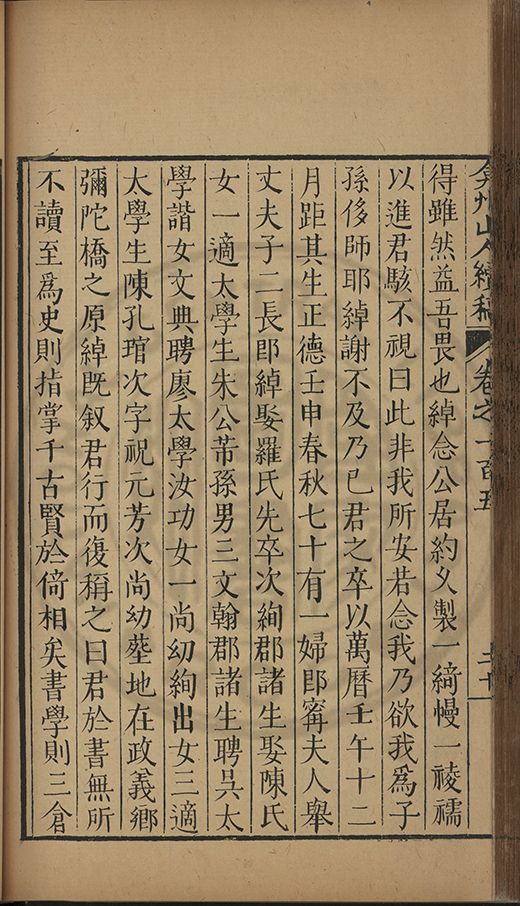 弇州山人續稿 卷之一百五 二十一
得雖然益吾畏也綽念公居約乆製一綺幔一祾襦
以進君駭不視曰此非我所安若念我乃欲我爲子
孫侈師耶綽謝不及乃已君之卒以萬曆壬午十二
月距其生正德壬申春秋七十有一婦卽甯夫人舉
丈夫子二長卽綽娶羅氏先卒次絢郡諸生娶陳氏
女一適太學生朱公芾孫男三文翰郡諸生聘吳太
學諧女文典聘廖太學汝功女一尚幼絢出女三適
太學生陳孔琯次字祝元芳次尚幼塟地在政義鄉
彌陀橋之原綽旣叙君行而復稱之曰君於書無所
不讀至爲史則指掌千古賢於倚相矣書學則三倉